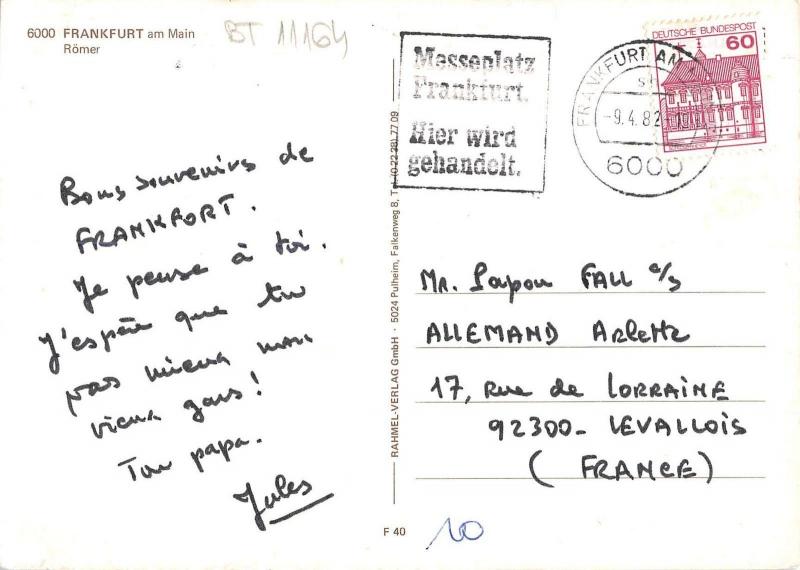 6000 FRANKFURT am Main
Römer
BT 11164
Bons souvenirs de
FRANKFORT.
Je pense à toi.
J'espère que tu
vas mieux mon
vieux gars!
Ton papa.
Jules
RAHMEL-VERLAG GmbH · 5024 Pulheim, Falkenweg 8, Tel. (0 22 38) 77 09
F 40
Messeplatz
Frankfurt.
Hier wird
gehandelt.
FRANKFURT AM
-9.4.82
6000
DEUTSCHE BUNDESPOST
60
Mr. Papou FALL c/s
ALLEMAND Arlette
17, Rue de LORRAINE
92300- LEVALLOIS
(FRANCE)
10